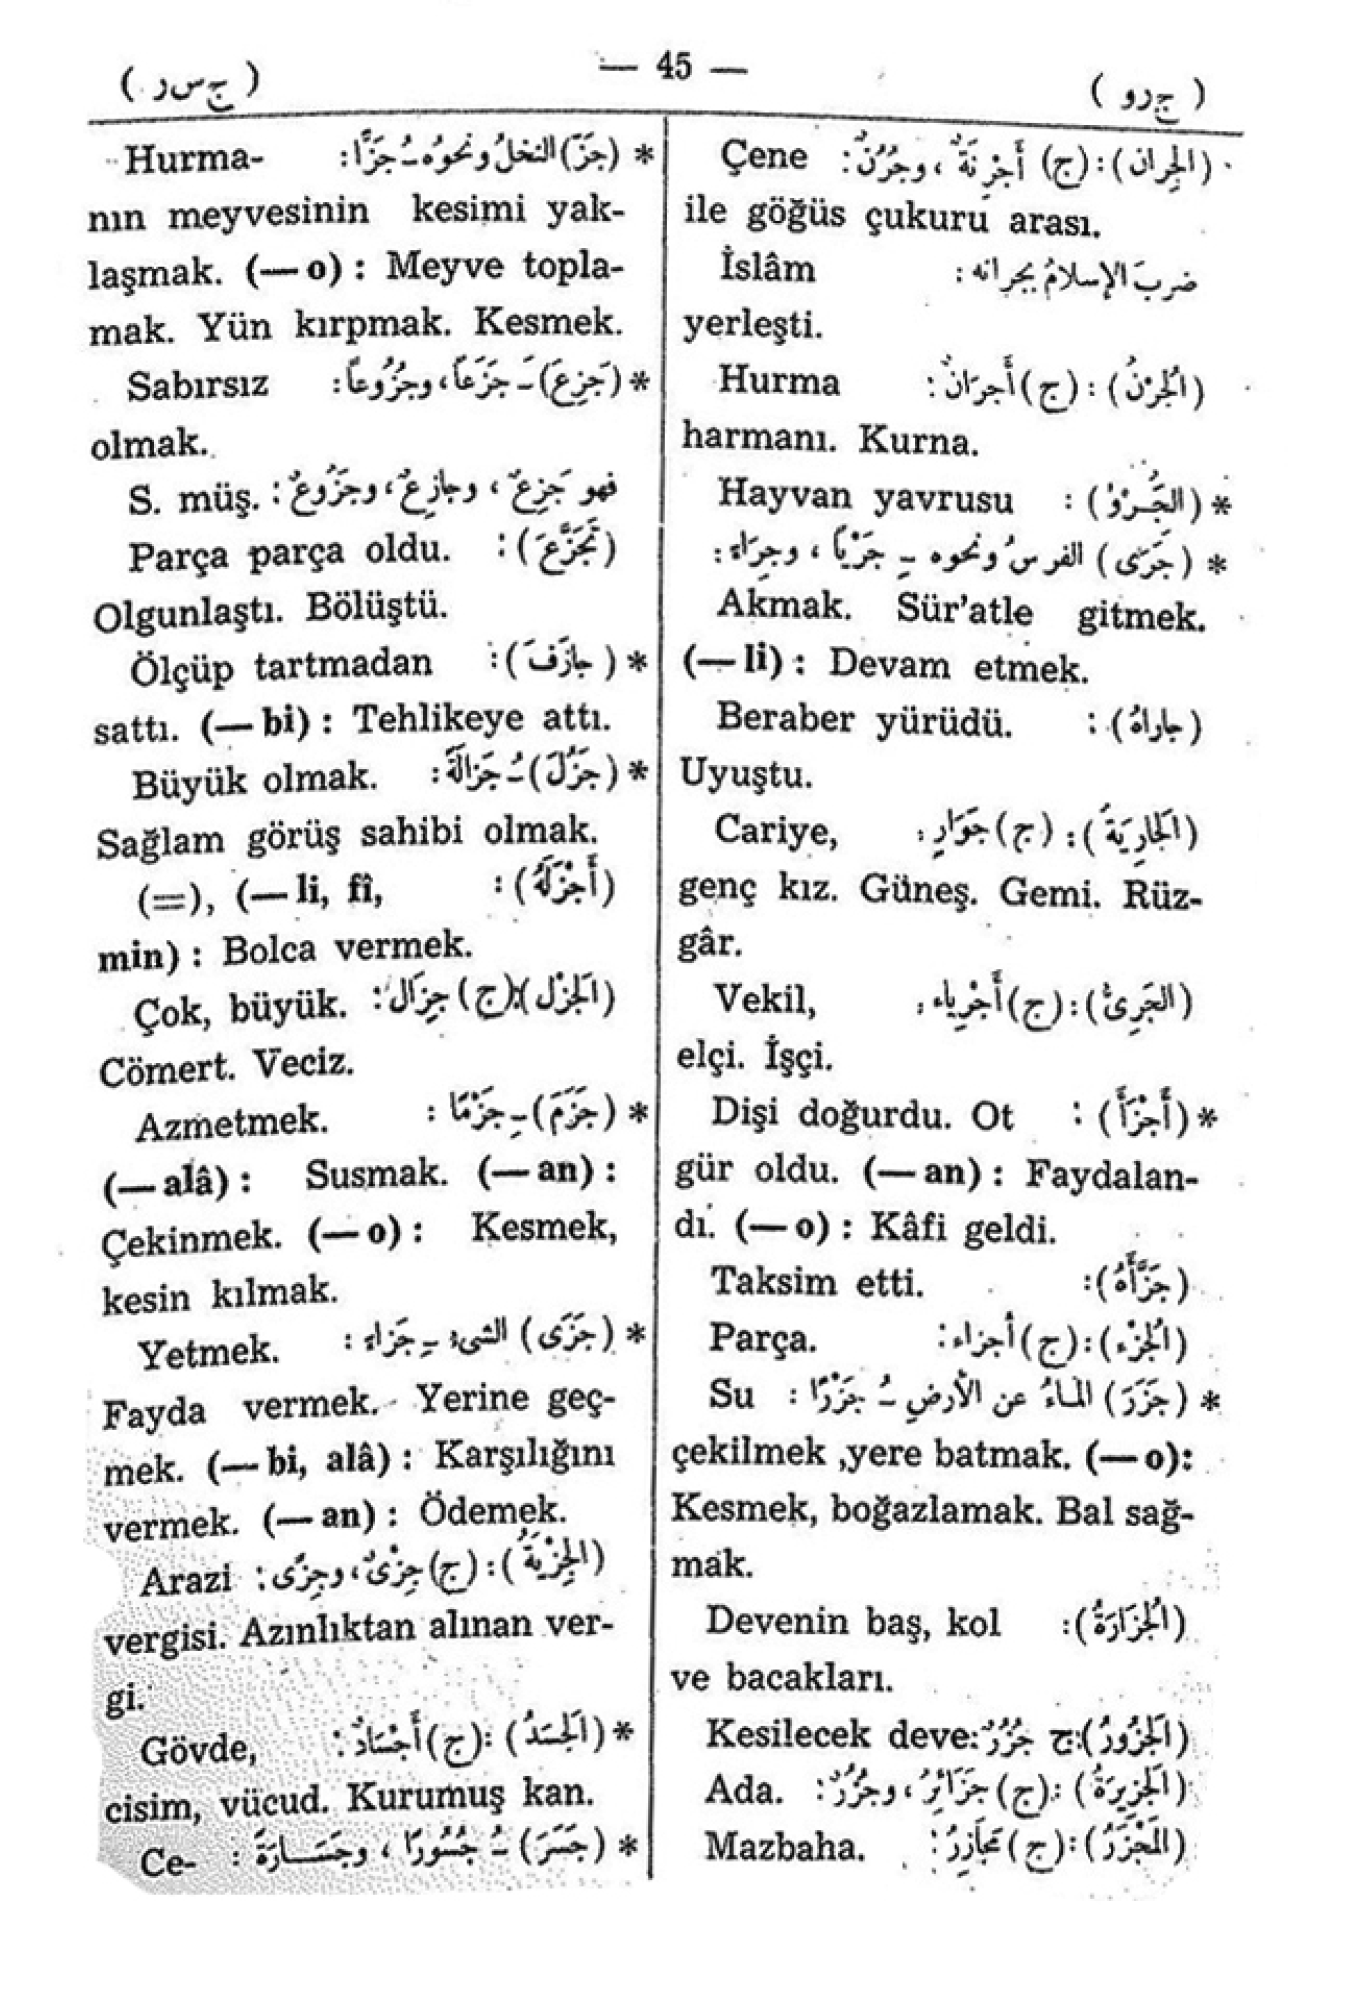 ( ج ر و ) — 45 — ( ج س ر )
(الجِران) : (ج) أَجْرِنَةٌ ، وجُرُنٌ : Çene
ile göğüs çukuru arası.
ضربَ الإسلامُ بجرانه : İslâm
yerleşti.
(الجُرْنُ) : (ج) أَجرانٌ : Hurma
harmanı. Kurna.
* (الجَُِرْوُ) : Hayvan yavrusu
* (جَرَى) الفرسُ ونحوه ـِ جَرْياً ، وجِرَاءً :
Akmak. Sür'atle gitmek.
(— li) : Devam etmek.
(جاراهُ) : Beraber yürüdü.
Uyuştu.
(الجَارِيَةُ) : (ج) جَوَارٍ : Cariye,
genç kız. Güneş. Gemi. Rüz-
gâr.
(الجَرِيُّ) : (ج) أَجْرِياء : Vekil,
elçi. İşçi.
* (أَجْزَأَ) : Dişi doğurdu. Ot
gür oldu. (— an) : Faydalan-
dı. (— o) : Kâfi geldi.
(جَزَّأَهُ) : Taksim etti.
(الجُزْء) : (ج) أجزاء : Parça.
* (جَزَرَ) الماءُ عن الأرضِ ـُ جَزْرًا : Su
çekilmek ,yere batmak. (— o):
Kesmek, boğazlamak. Bal sağ-
mak.
(الجُزَارَةُ) : Devenin baş, kol
ve bacakları.
(الجَزُورُ) : ج جُزُرٌ : Kesilecek deve
(الجَزِيرَةُ) : (ج) جَزَائِرُ ، وجُزُرٌ : Ada.
(المَجْزَرُ) : (ج) مَجَازِرُ : Mazbaha.
* (جَزَّ) النخلُ ونحوُه ـُ جَزًّا : Hurma-
nın meyvesinin kesimi yak-
laşmak. (— o) : Meyve topla-
mak. Yün kırpmak. Kesmek.
* (جَزِعَ) ـَ جَزَعاً ، وجُزُوعاً : Sabırsız
olmak.
فهو جَزِعٌ ، وجازِعٌ ، وجَزُوعٌ : S. müş.
(تَجَزَّعَ) : Parça parça oldu.
Olgunlaştı. Bölüştü.
* (جازَفَ) : Ölçüp tartmadan
sattı. (— bi) : Tehlikeye attı.
* (جَزُلَ) ـُ جَزالَةً : Büyük olmak.
Sağlam görüş sahibi olmak.
(أَجْزَلَهُ) : (=), (— li, fî,
min) : Bolca vermek.
(الجَزْل) : (ج) جِزَال : Çok, büyük.
Cömert. Veciz.
* (جَزَمَ) ـِ جَزْمًا : Azmetmek.
(— alâ) : Susmak. (— an) :
Çekinmek. (— o) : Kesmek,
kesin kılmak.
* (جَزَى) الشيءُ ـِ جَزاءً : Yetmek.
Fayda vermek. Yerine geç-
mek. (— bi, alâ) : Karşılığını
vermek. (— an) : Ödemek.
(الجِزْيَةُ) : (ج) جِزْيٌ ، وجِزًى : Arazi
vergisi. Azınlıktan alınan ver-
gi.
* (الجَسَدُ) : (ج) أَجْسَادٌ : Gövde,
cisim, vücud. Kurumuş kan.
* (جَسَرَ) ـُ جُسُورًا ، وجَسَارَةً : Ce-